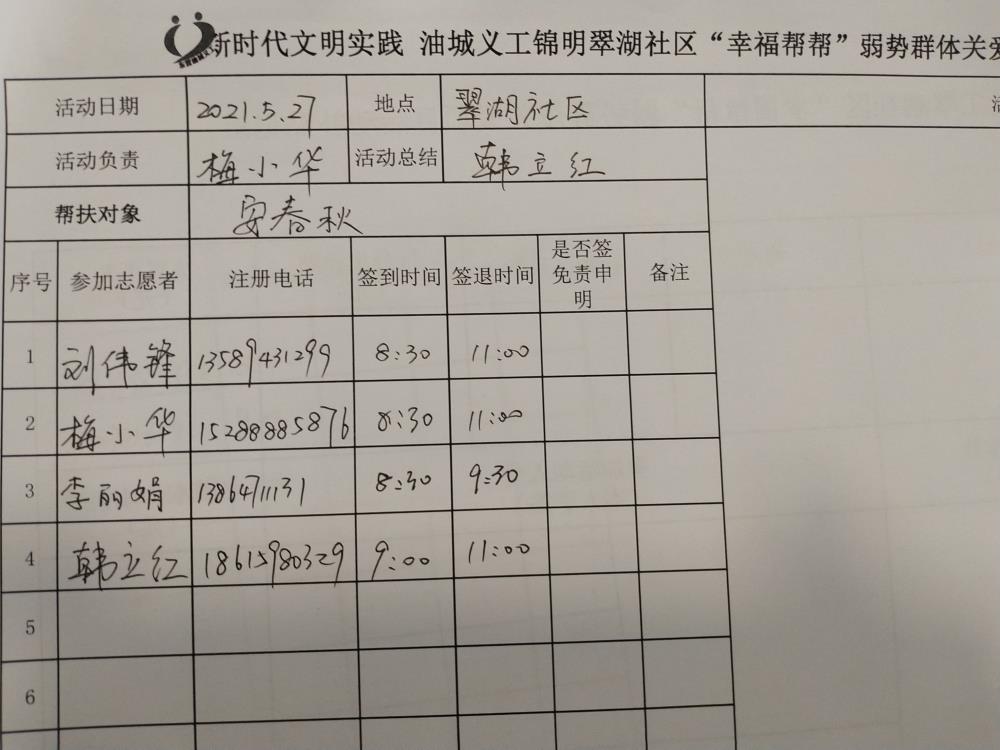 新时代文明实践 油城义工锦明翠湖社区“幸福帮帮”弱势群体关爱
活动日期 2021.5.27 地点 翠湖社区
活动负责 梅小华 活动总结 韩立红
帮扶对象 安春秋
序号 参加志愿者 注册电话 签到时间 签退时间 是否签免责申明 备注
1 刘伟锋 13589431299 8:30 11:00
2 梅小华 15288885876 8:30 11:00
3 李丽娟 13864711131 8:30 9:30
4 韩立红 18615980329 9:00 11:00
5
6